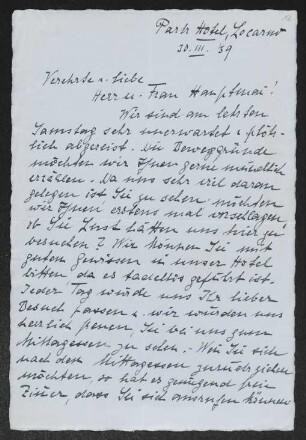 Park Hotel, Locarno
30. III. 39
Verehrte u. liebe
Herr u. Frau Hauptman!
Wir sind am letzten
Samstag sehr unerwartet u. plötz-
lich abgereist. Die Beweggründe
möchten wir Ihnen gerne mündlich
erzählen. Da uns sehr viel daran
gelegen ist Sie zu sehen möchten
wir Ihnen erstens mal vorschlagen
ob Sie Lust hätten uns hier zu
besuchen? Wir können Sie mit
gutem Gewissen in unser Hotel
bitten da es tadellos geführt ist.
Jeder Tag würde uns Ihr lieber
Besuch passen u. wir würden uns
herrlich freuen, Sie bei uns zum
Mittagessen zu sehen. Wenn Sie sich
nach dem Mittagessen zurückziehen
möchten, so hat es genügend freie
Zimmer, dass Sie sich ausruhen können